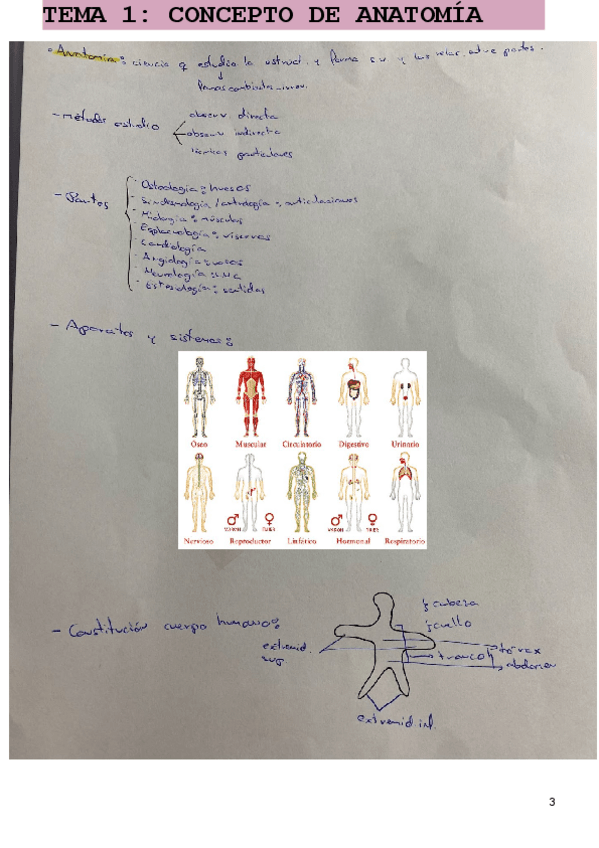 TEMA 1: CONCEPTO DE ANATOMÍA
Anatomía: ciencia q estudia la estruct. y forma s.v y las relac. entre partes.
- métodos estudio
observ directa
observ indirecta
técnicas particulares
- Partes
Osteología: huesos
Sindesmología / artrología: articulaciones
Miología: músculos
Esplacnología: vísceras
Cardiología
Angiología: vasos
Neurología: S.N.C
Estesiología: sentidos
- Aparatos y sistemas:
Óseo Muscular Circulatorio Digestivo Urinario
Nervioso Reproductor Linfático Hormonal Respiratorio
- Constitución cuerpo humano:
cabeza
cuello
extremid. sup.
tronco
tórax
abdomen
extremid. inf.
3